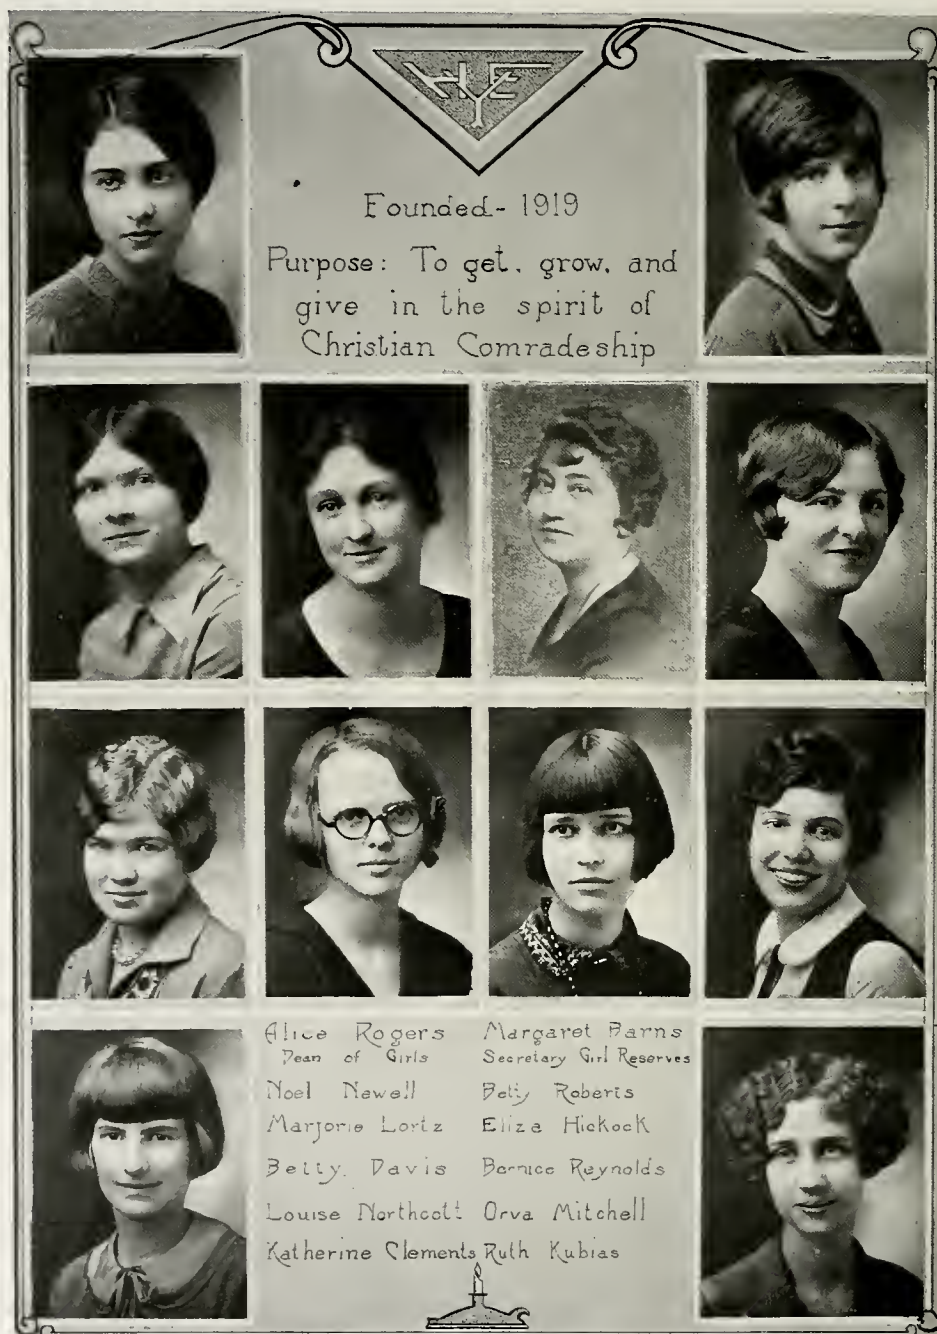 HYE
Founded - 1919
Purpose: To get, grow, and
give in the spirit of
Christian Comradeship
Alice Rogers
Dean of Girls
Noel Newell
Marjorie Lortz
Betty Davis
Louise Northcott
Katherine Clements
Margaret Barns
Secretary Girl Reserves
Betty Roberts
Eliza Hickock
Bernice Reynolds
Orva Mitchell
Ruth Kubias